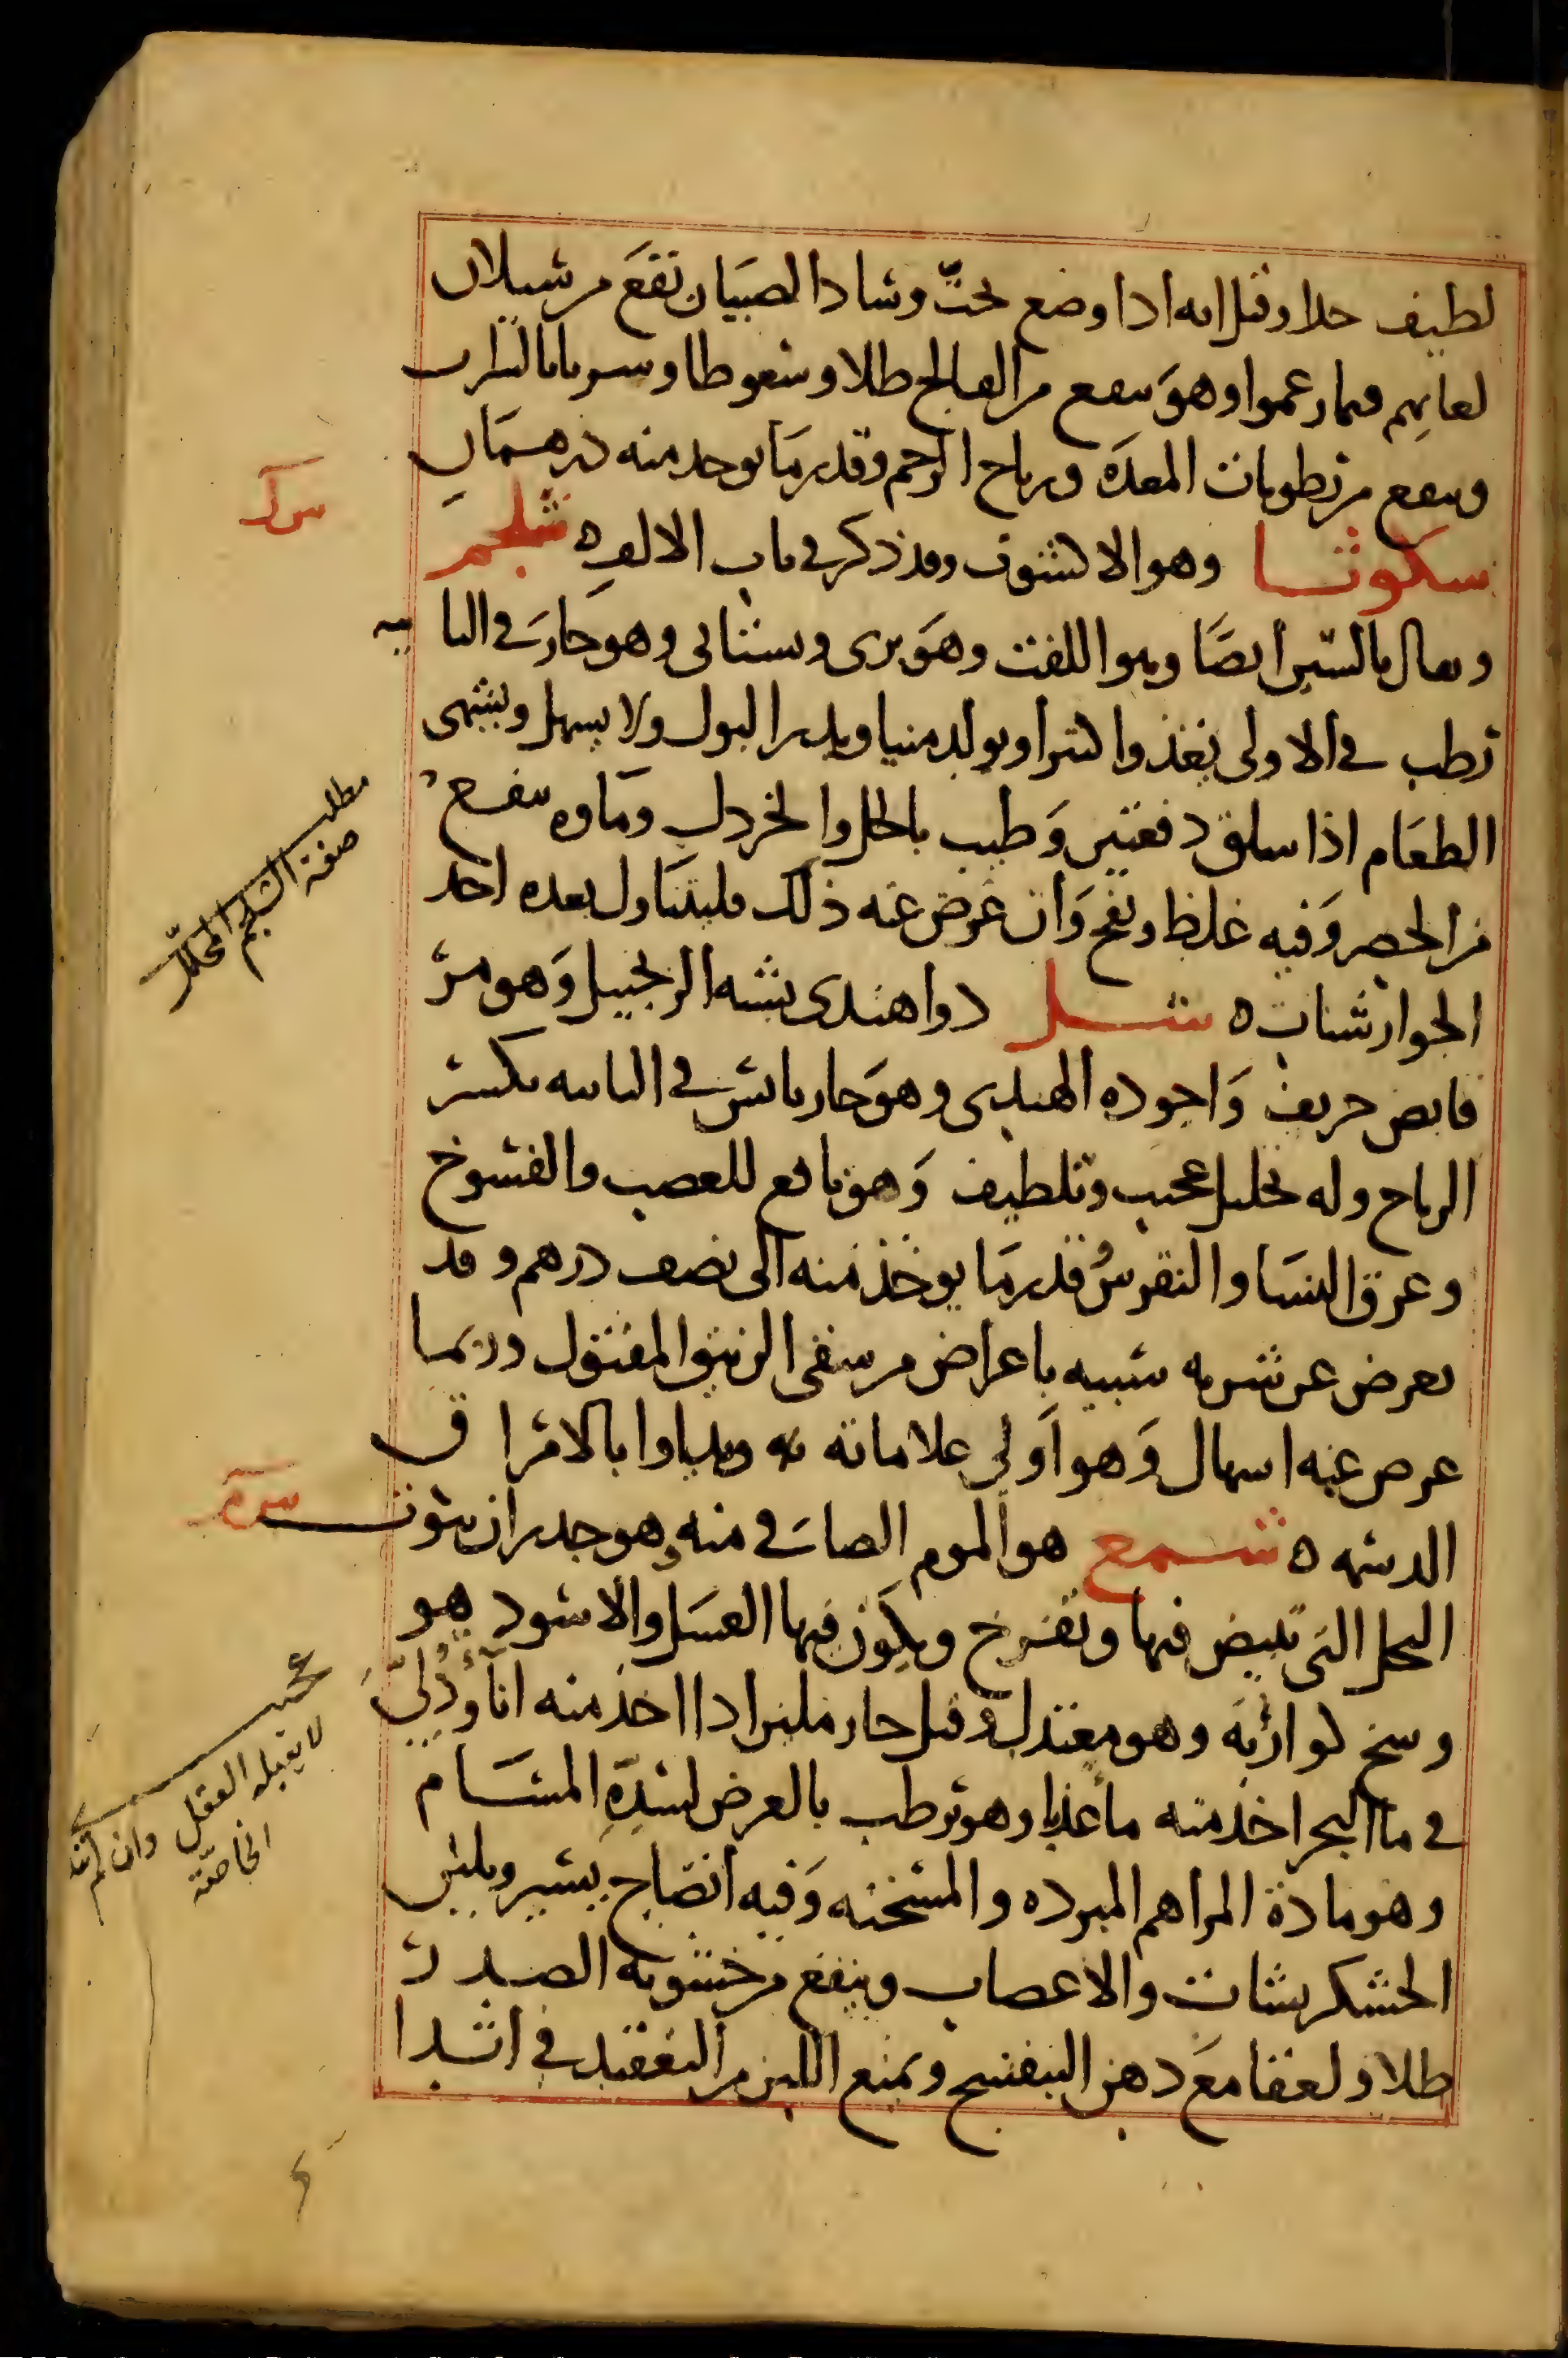 لطيف جلا وقيل انه اذا وضع تحت وساد الصبيان نفع من سيلان
لعابهم فيما زعموا وهو ينفع من الفالج طلا وسعوطا وشربا بالشراب
وينفع من رطوبات المعده ورياح الرحم وقدر ما يوخذ منه درهمان
سكوثا وهو الاكشوث وقد ذكر في باب الالف ه شلجم
ويقال بالسين ايضا وهو اللفت وهو بري وبستاني وهو حار في الثا نيه
رطب في الاولى يغذوا كثيرا ويولد منيا ويدر البول ولا يسهل ويشهى
الطعام اذا سلق دفعتين وطيب بالخل والخردل وماوه ينفع
من الحصر وفيه غلظ ونفخ وان عرض عنه ذلك فليتناول بعده احد
الجوارشنات ه شل دوا هندى يشبه الزنجبيل وهو مر
قابض حريف واجوده الهندى وهو حار يابس في الثانيه يكسر
الرياح وله تحليل عجيب وتلطيف وهو نافع للعصب والفسوخ
وعرق النسا والنقرس قدر ما يوخذ منه الى نصف درهم وقد
يعرض عن شربه شبيه باعراض من سقى الزيبق المقتول وربما
عرض عنه اسهال وهو اولى علاماته به ويداوا بالامرا ق
الدسمه ه شمع هو الموم الصافي منه وهو جدران بيوت
النحل التى تبيض فيها وتفرخ ويكون فيها العسل والاسود هو
وسخ كوارته وهو معتدل وقيل حار ملين اذا اخذ منه انآ ودلي
في ما البحر اخذ منه مأ عذبا وهو يرطب بالعرض لسده المسام
وهو مادة المراهم المبرده والمسخنه وفيه انضاج يسير ويلين
الخشكريشات والاعصاب وينفع من خشونه الصدر
طلا ولعقا مع دهن البنفسج ويمنع اللبن من التعقيد في اثدا
مطلب
صفة الشلجم المخلل
عجيب
لا يقبله العقل وان لم
الخاصة